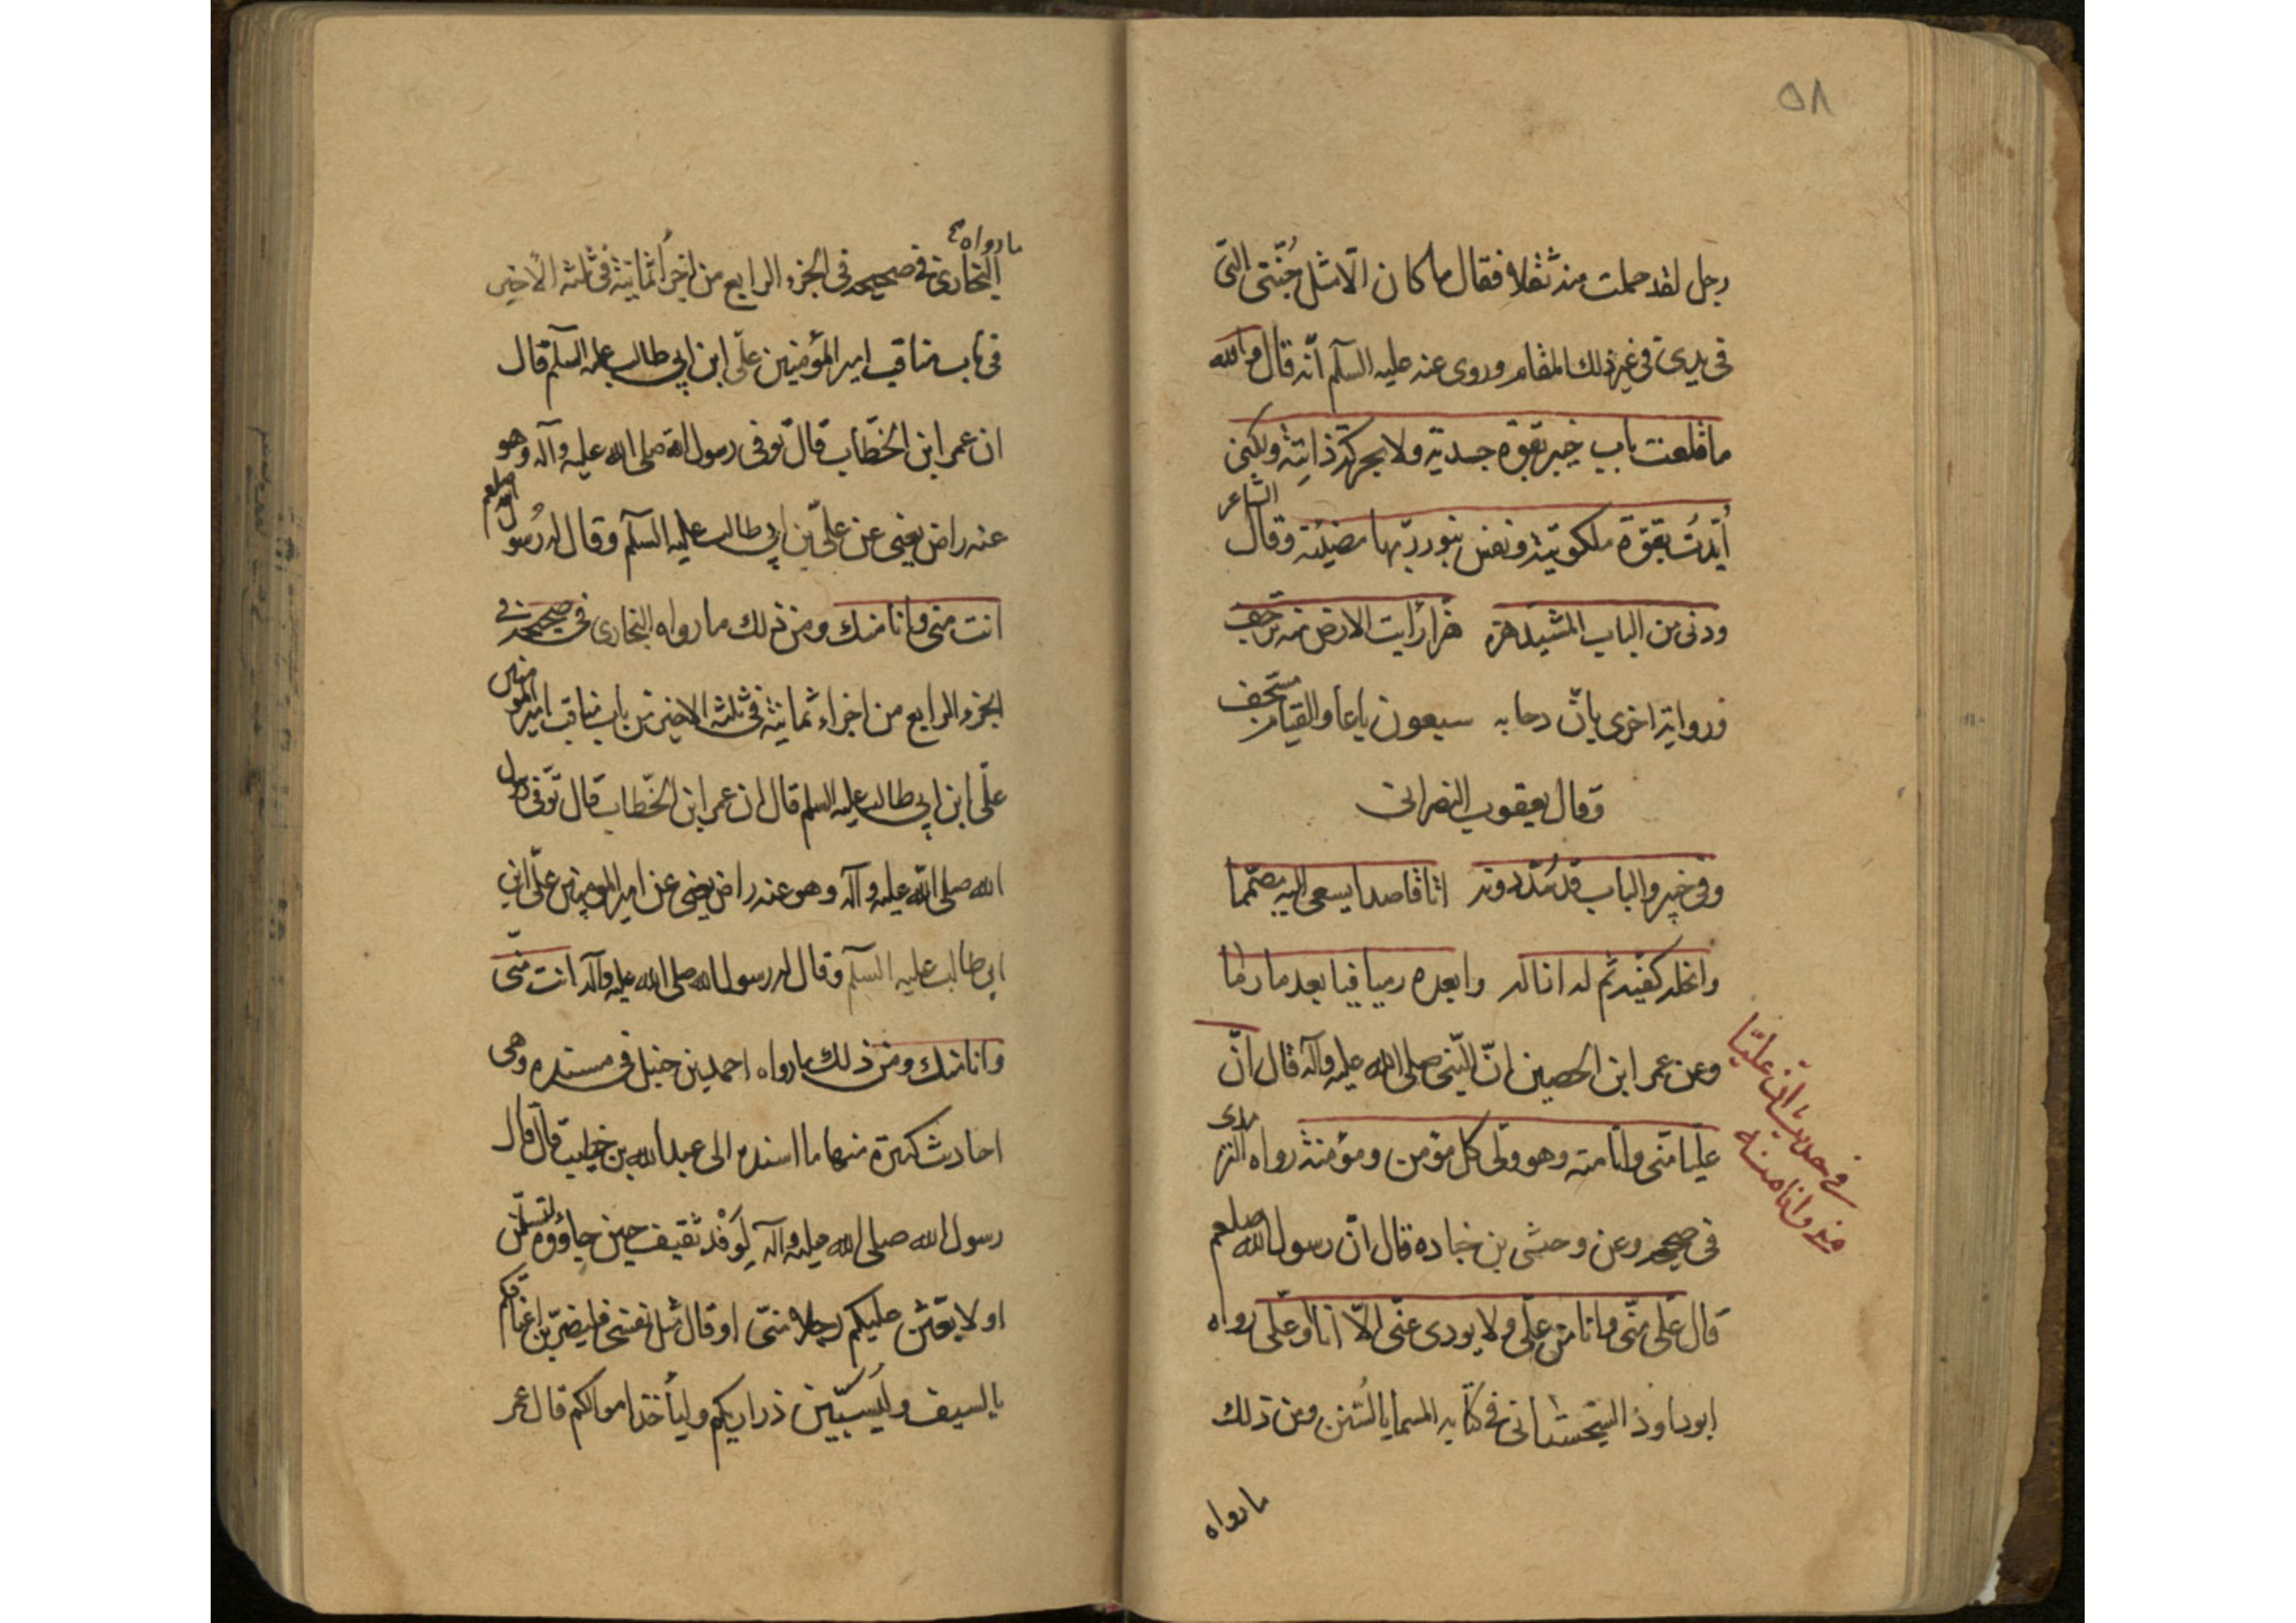 ٥٨
رجل لقد حملت منه ثقلا فقال ما كان الّا مثل جُنّتى التى
فى يدى فى غير ذلك المقام وروى عنه عليه السلّم انّه قال والله
ما قلعت باب خيبر بقوّة جسديّة ولا بحركة غذائيّة ولكنى
أيّدتُ بقوّة ملكوتيّة ونفس بنور ربّها مضيئة وقال الشاعر
ودنى من الباب المشيّد هزه هزا رأيت الارض منه ترجف
وروايتر اخرى بانّ دحا به سبعون باعا والقيام مستجف
وقال يعقوب النصرانى
وفى خيبر والباب قد سُدّ دونه اتا قاصدا يسعى اليه مصمّما
كفيه ثم له انا له وابعده رميا فيا بعد ما رما
وعن عمر ابن الحصين انّ النّبى صلى الله عليه وآله قال انّ
عليّا منّى وانا منه وهو ولّى كل مؤمن ومؤمنة رواه الترمدى
فى صحيحه وعن وحشى بن جناده قال انّ رسول الله صلعم
قال علّى منّى وانا من علّى ولا يودى عنّى الّا انا او علّى رواه
ابو داوذ السجستانى فى كتابه المسما بالسُنن ومن ذلك
ما رواه
فى حديث ان عليّا
منى وانا منه
ما رواه
البخارى فى صحيحه فى الجزء الرابع من اجزأ ثمانية فى ثلثه الأخير
فى باب مناقب امير المؤمنين علّى ابن ابى طالب عليه السلم قال
ان عمر ابن الخطّاب قال توفى رسول الله صلى الله عليه وآله وهو
عنه راض يعنى عن علّى بن ابى طالب عليه السلّم وقال له رُسول الله صلعم
انت منى وانا منك ومن ذلك ما رواه البخارى فى صحيحه فى
الجزو الرابع من اجزاء ثمانية فى ثلثه الاخير من باب مناقب امير المومنين
علّى ابن ابى طالب عليه السلم قال ان عمر ابن الخطاب قال توّفى رسول
الله صلى الله عليه وآله وهو عنه راض يعنى عن امير المومنين علّى ابن
ابى طالب عليه السلّم وقال له رسول الله صلى الله عليه وآله انت منّى
وانا منك ومن ذلك ما رواه احمد بن حنبل فى مسنده وهى
احاديث كثيرة منها ما اسنده الى عبد الله بن خطيب قال قال
رسول الله صلى الله عليه وآله لِوَفْد ثقيف حين جاؤوه لتسلمنّ
او لابعثن عليكم رجلا منّى او قال مثل نفسى فليضربن اعناقكم
بالسيف وليَسبّين ذراريكم وليأخذ اموالكم قال عمر